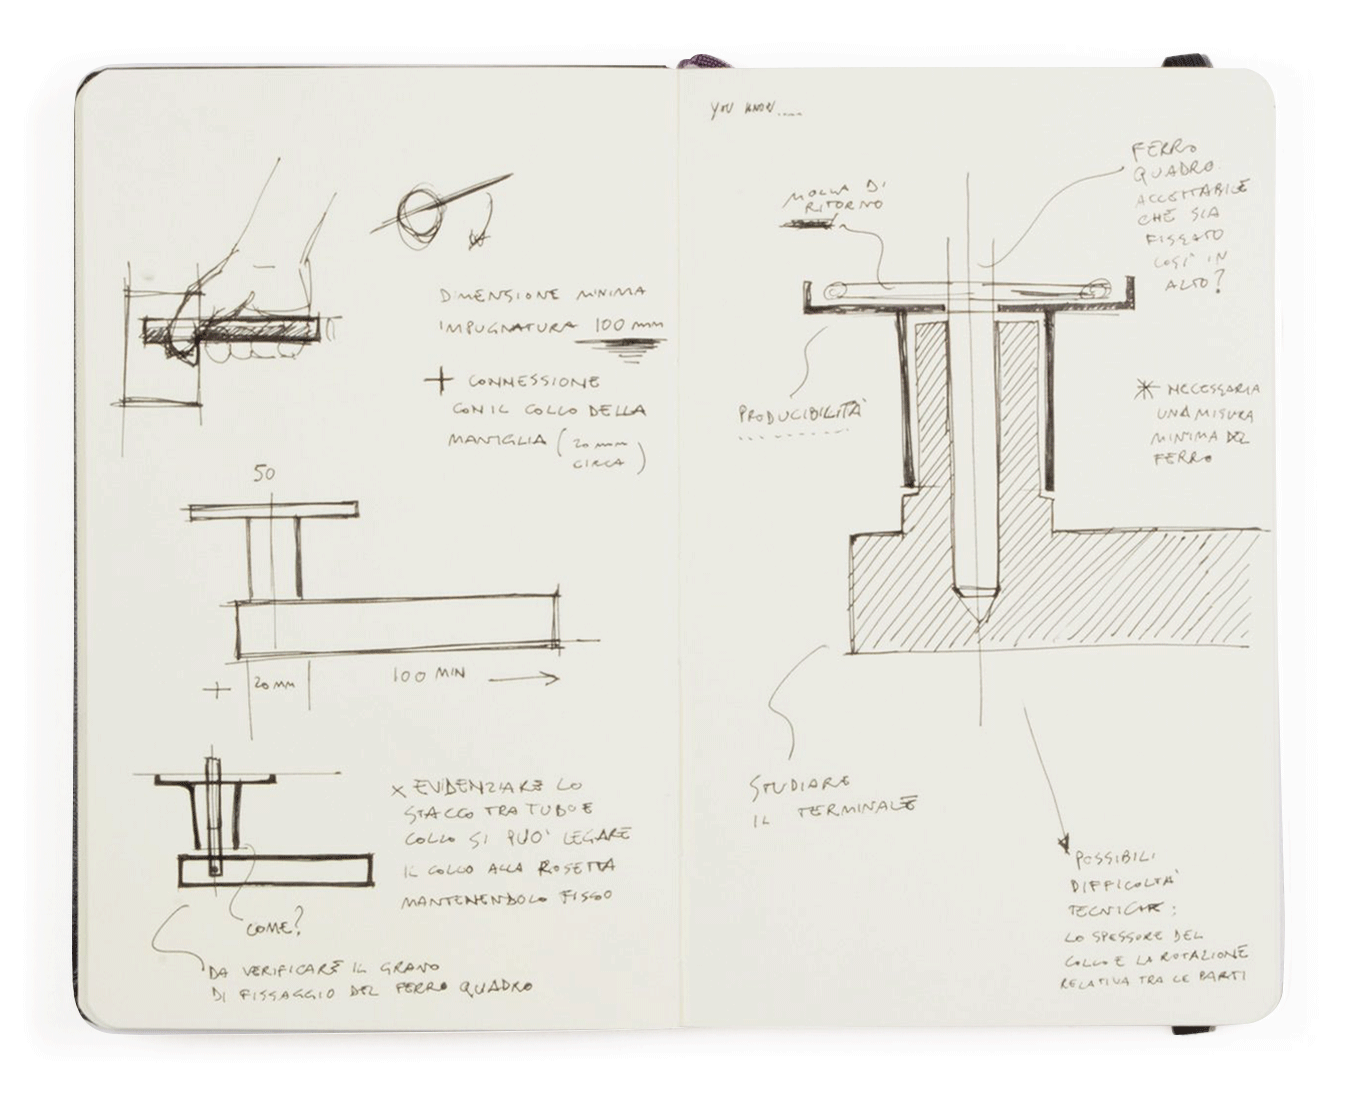 DIMENSIONE MINIMA
IMPUGNATURA 100 mm
+ CONNESSIONE
CON IL COLLO DELLA
MANIGLIA (20 mm
CIRCA)
50
+ 20 mm
100 MIN
x EVIDENZIARE LO
STACCO TRA TUBO E
COLLO SI PUO' LEGARE
IL COLLO ALLA ROSETTA
MANTENENDOLO FISSO
COME?
DA VERIFICARE IL GRANO
DI FISSAGGIO DEL FERRO QUADRO
YOU KNOW.....
MOLLA DI
RITORNO
FERRO
QUADRO.
ACCETTABILE
CHE SIA
FISSATO
COSI' IN
ALTO?
PRODUCIBILITA'
* NECESSARIA
UNA MISURA
MINIMA DEL
FERRO
STUDIARE
IL TERMINALE
POSSIBILI
DIFFICOLTA'
TECNICHE:
LO SPESSORE DEL
COLLO E LA ROTAZIONE
RELATIVA TRA LE PARTI